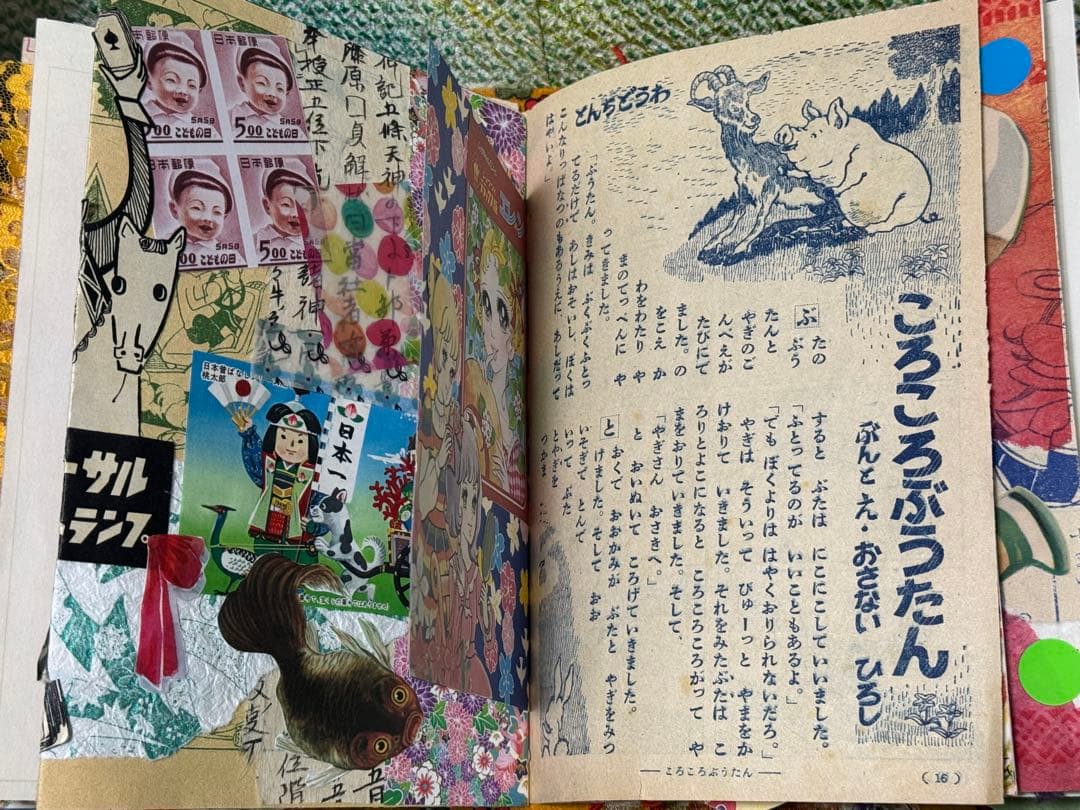 日本郵便
5.00 こどもの日
日本郵便
5.00 こどもの日
日本郵便
5.00 こどもの日
日本郵便
5.00 こどもの日
五條天神
藤原
日本昔ばなし
桃太郎
日本一
ーサル
トランプ
とんちどうわ
ころころぶうたん
ぶんとえ・おさない ひろし
ぶたの
ぶう
たんと
やぎのご
んべえが
たびにで
ました。の
をこえ か
わをわたり や
まのてっぺんに や
ってきました。
「ぶうたん。きみは ぶくぶくふとっ
てるだけで あしはおそいし、ぼくは
こんなりっぱなつのもあるうえに、あしだって
はやいよ。」
すると ぶたは にこにこしていいました。
「ふとってるのが いいこともあるよ。」
「でも ぼくよりは はやくおりられないだろ。」
やぎは そういって びゅーっと やまをか
けおりて いきました。それをみたぶたは こ
ろりとよこになると ころころころがって や
まをおりていきました。そして、
「やぎさん おさきへ。」
と おいぬいて ころげていきました。
とおくで、おおかみが ぶたと やぎをみつ
けました。そして おお
いそぎで とんで
いって ぶた
とやぎを
つかま
ころころぶうたん
(16)